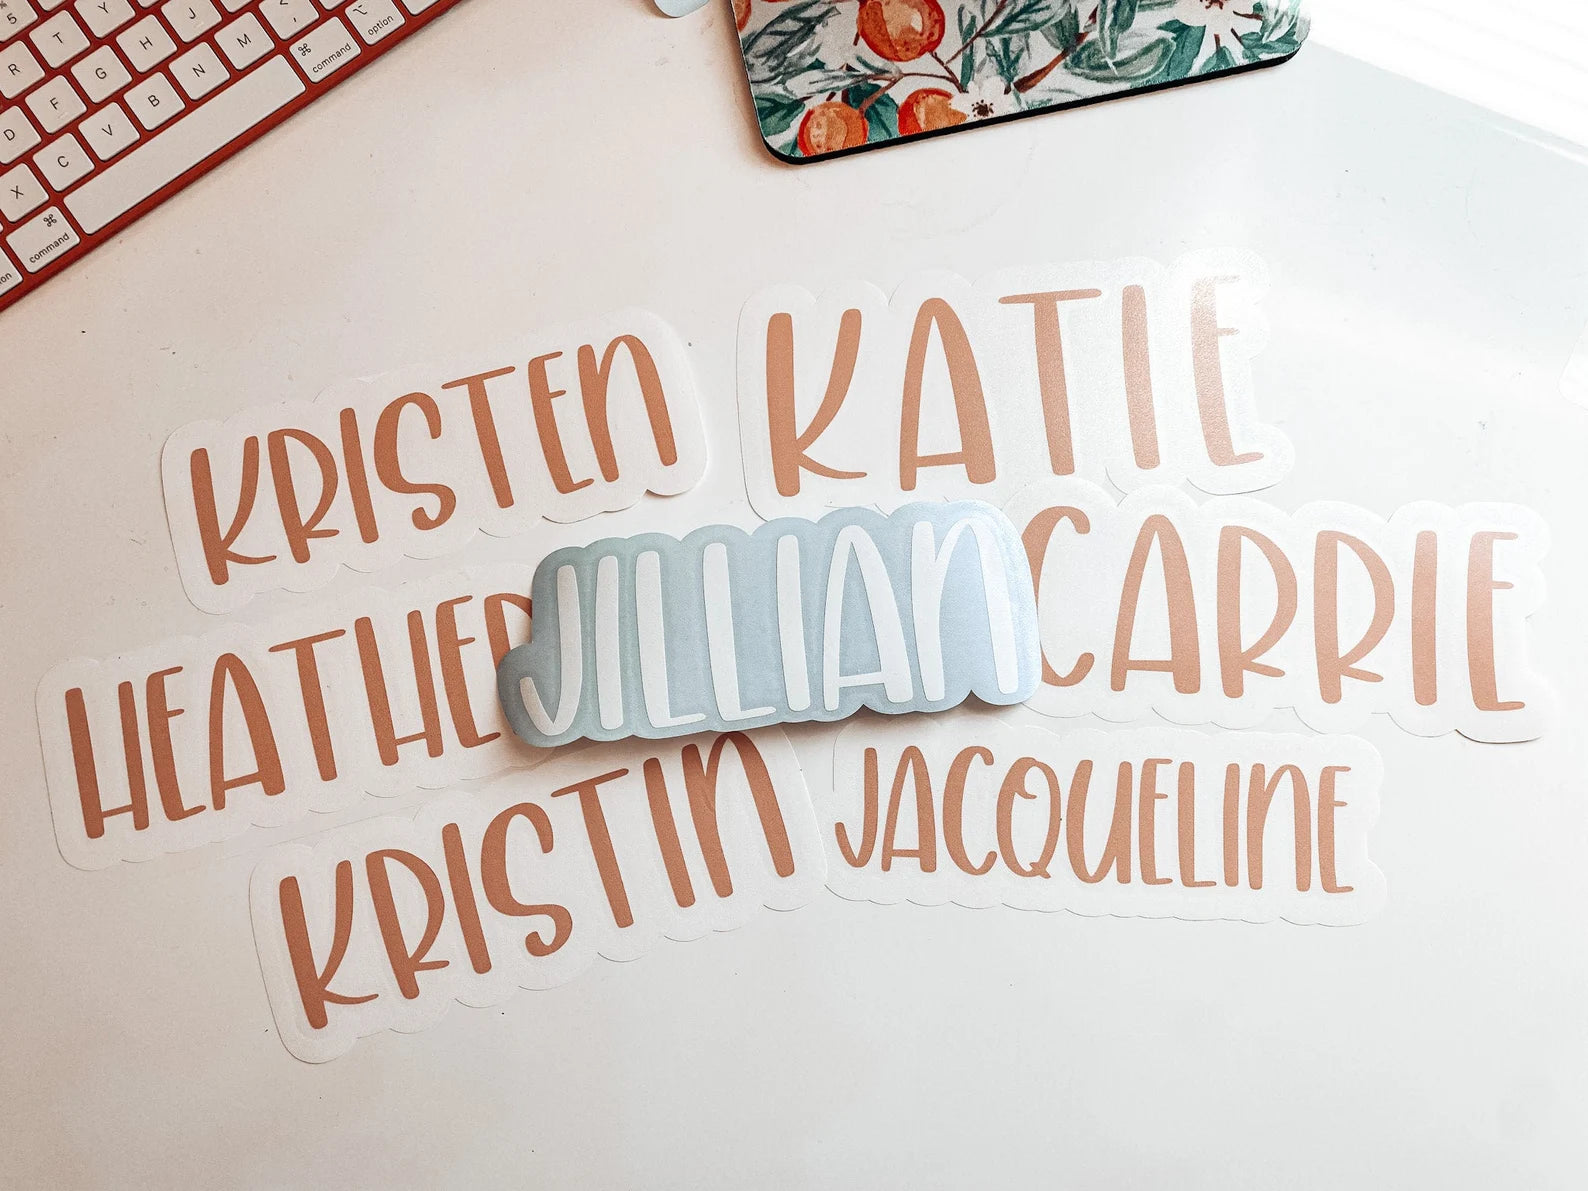 5 T Y
R G H J M < , ⌘ command ⌥ option
D F V B N
X C
⌘ command
KRISTEN
KATIE
HEATHER
JILLIAN
CARRIE
KRISTIN
JACQUELINE